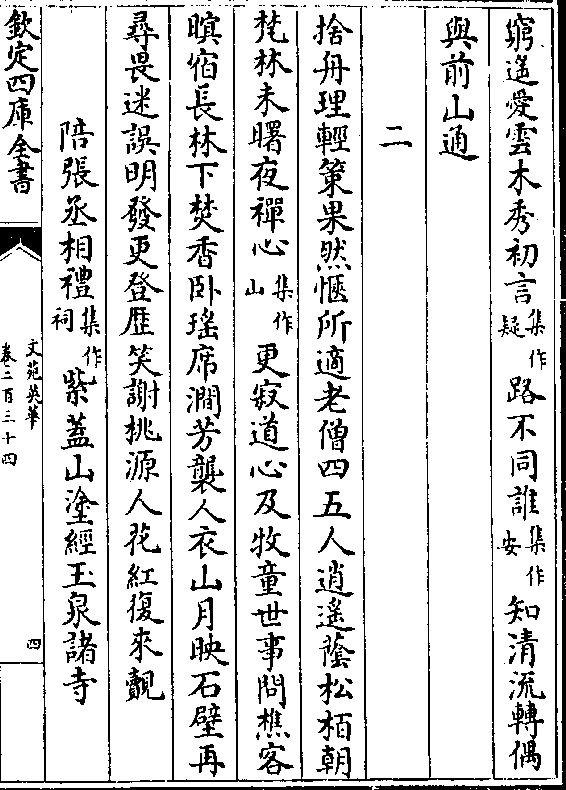 窮遥愛雲木秀初言集作疑路不同誰集作安知清流轉偶
與前山通
二
捨舟理輕策果然愜所適老僧四五人逍遥蔭松栢朝
梵林未曙夜禪心集作山更寂道心及牧童世事問樵客
暝宿長林下焚香卧瑶席澗芳襲人衣山月映石壁再
尋畏迷誤明發更登歴笑謝桃源人花紅復來覿
陪張丞相禮集作祠紫蓋山塗經玉泉諸寺
欽定四庫全書
文苑英華
卷二百三十四
四